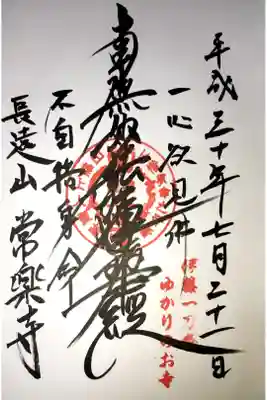 平成三十年七月二十一日
一心欲見佛
南無妙法蓮華經
不自惜身命
長遠山 常樂寺
ゆかりのお寺